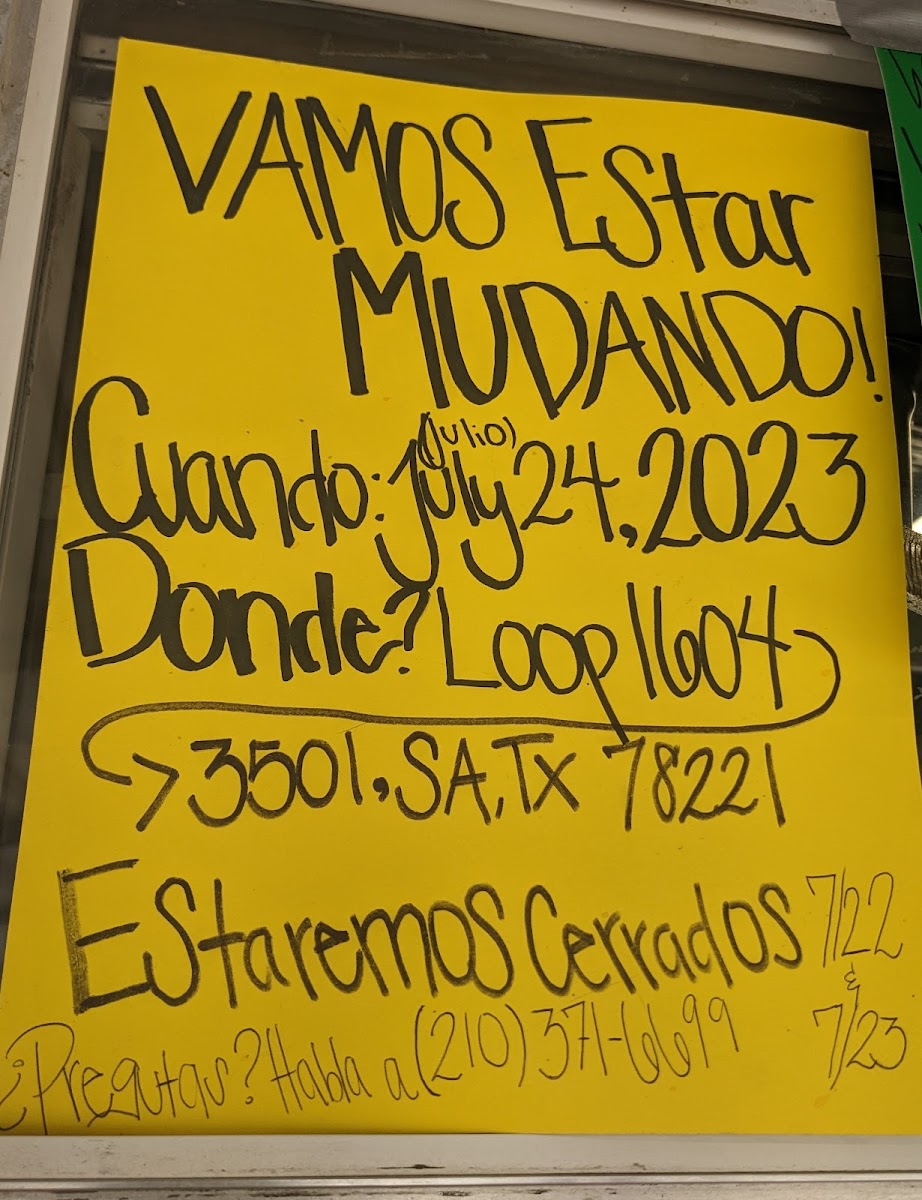 VAMOS Estar
MUDANDO!
Cuando: july (Julio) 24, 2023
Donde? Loop 1604
3501, SA, Tx 78221
Estaremos Cerrados 7/22
&
7/23
¿Pregutas? Habla a (210) 371-6699